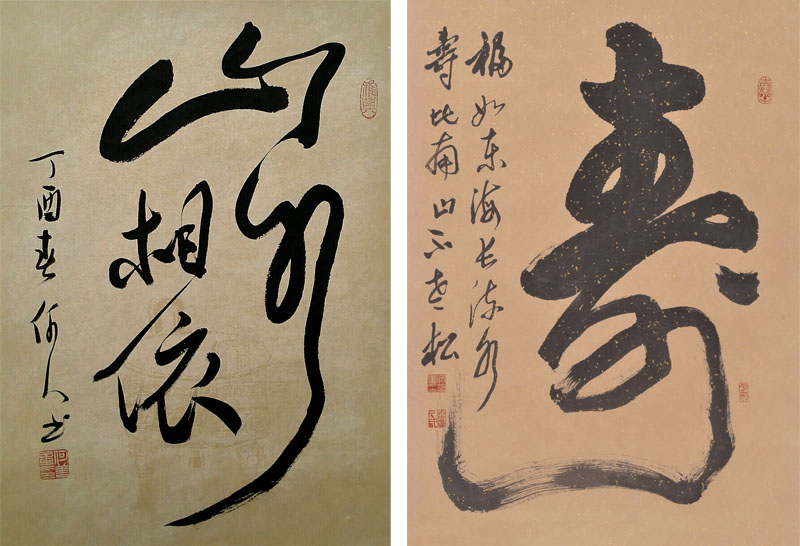 山水
相依
丁酉春何人书
寿
福如东海长流水
壽比南山不老松